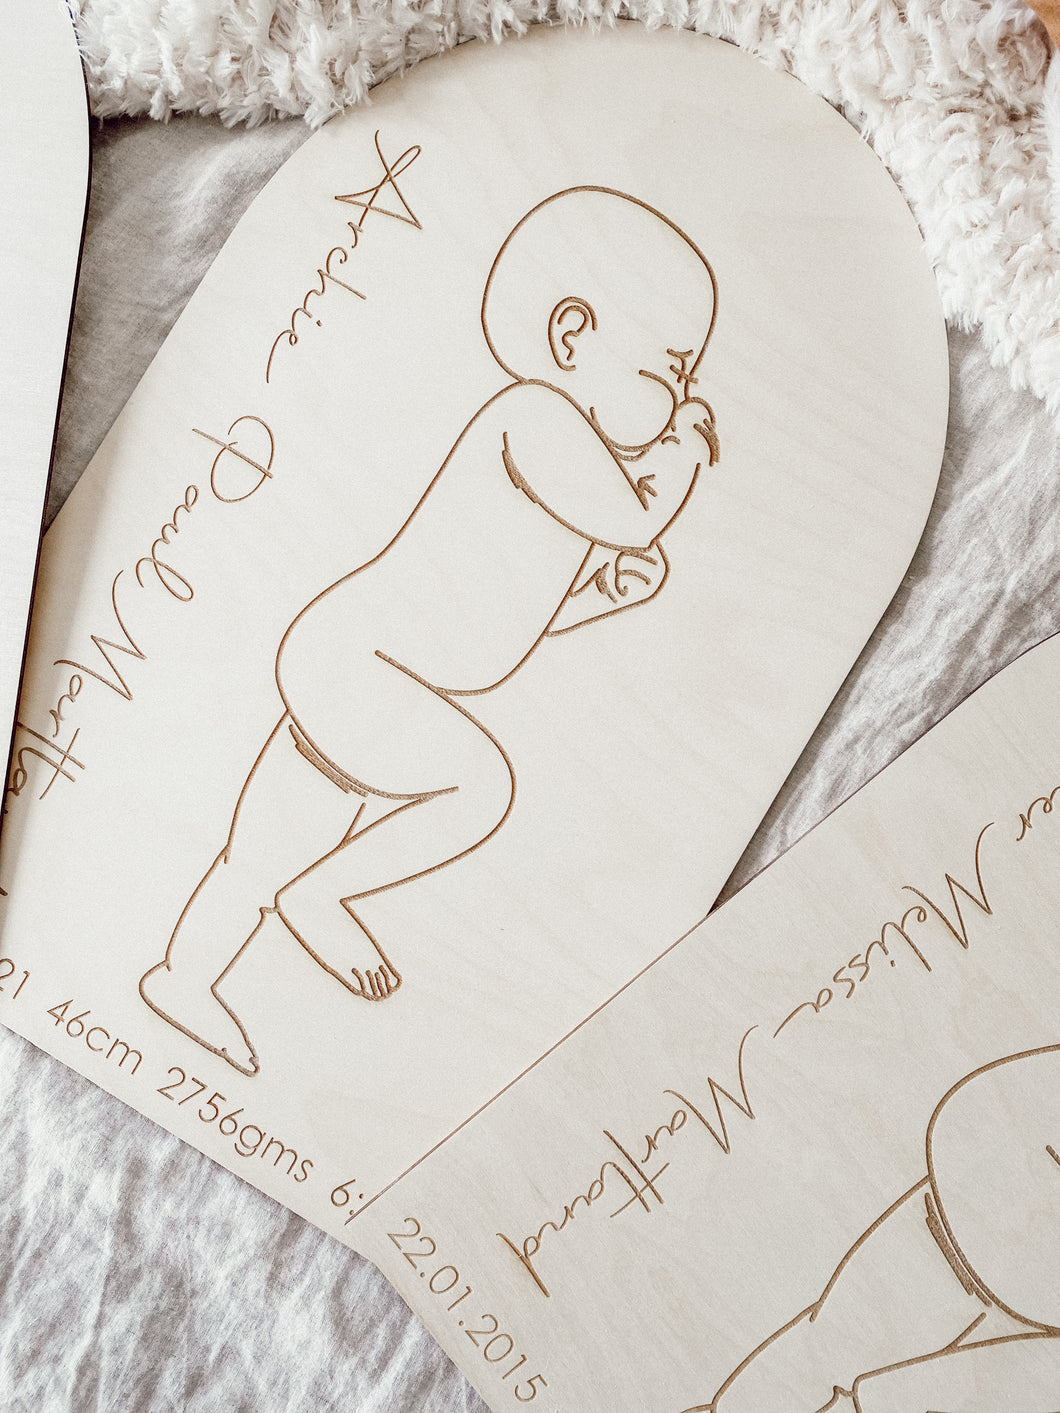 Archie Paul Martta
21 46cm 2756gms 6:
er Melissa Marttand
22.01.2015